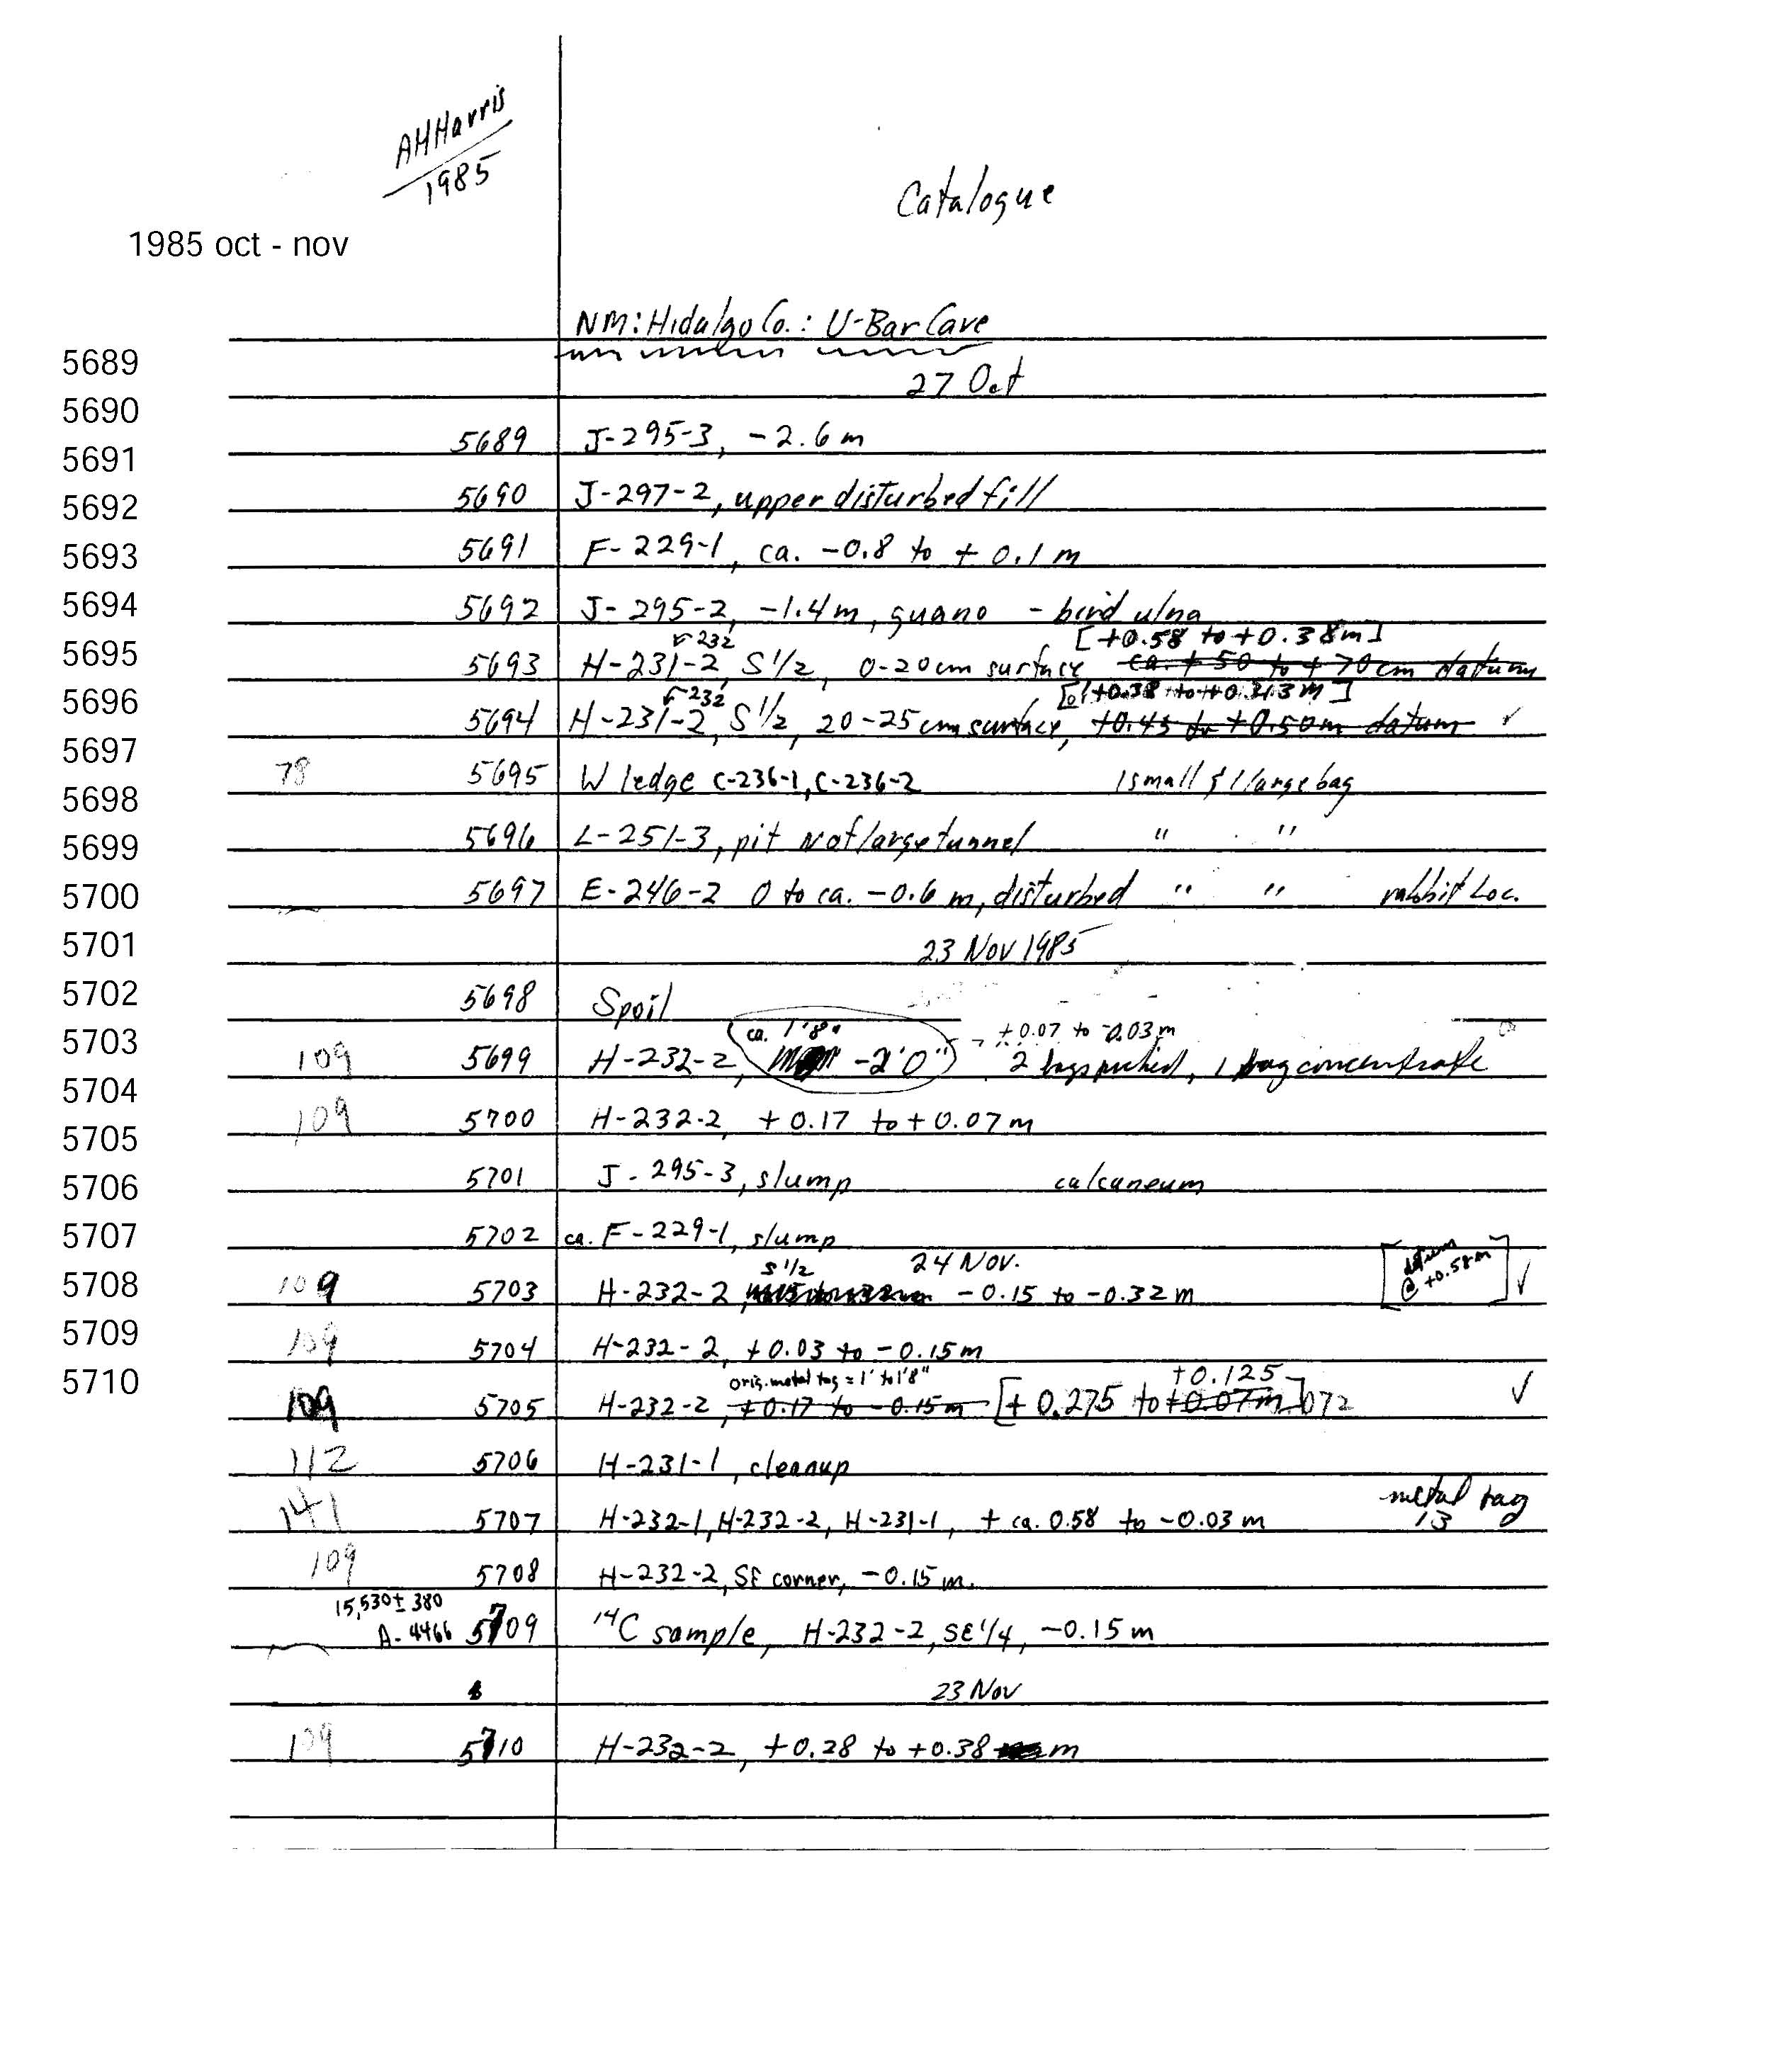 AHHarris
1985
Catalogue
1985 oct - nov
NM: Hidalgo Co.: U-Bar Cave
5689
27 Oct
5690
5689 J-295-3, -2.6 m
5691
5690 J-297-2, upper disturbed fill
5692
5691 F-229-1, ca. -0.8 to +0.1 m
5693
5692 J-295-2, -1.4 m, guano - bird ulna
5694
232 [+0.58 to +0.38m]
5695
5693 H-231-2, S 1/2, 0-20 cm surface, ca. + 50 to + 70 cm datum
232 [+0.38 to +0.313 m]
5696
5694 H-231-2, S 1/2, 20-25 cm surface, +0.45 to +0.50 m datum ✓
5697
78 5695 W ledge C-236-1, C-236-2 1 small & 1 large bag
5698
5696 L-251-3, pit N of large tunnel " "
5699
5697 E-246-2 0 to ca. -0.6 m, disturbed " " rabbit Loc.
5700
23 Nov 1985
5701
5698 Spoil
5702
ca. 1'8" +0.07 to -0.03 m
5703
109 5699 H-232-2, -2'0" 2 bags picked, 1 bag concentrate
5704
109 5700 H-232-2, +0.17 to +0.07 m
5705
5701 J-295-3, slump calcaneum
5706
5702 ca. F-229-1, slump
5707
24 Nov.
S 1/2 [datum @ +0.58 m] ✓
5708
109 5703 H-232-2, -0.15 to -0.32 m
5709
109 5704 H-232-2, +0.03 to -0.15 m
orig. metal tag = 1' to 1'8" +0.125
5710
109 5705 H-232-2, +0.17 to -0.15 m [+0.275 to +0.07 m] 072 ✓
112 5706 H-231-1, cleanup
metal tag
141 5707 H-232-1, H-232-2, H-231-1, + ca. 0.58 to -0.03 m 13
109 5708 H-232-2, SE corner, -0.15 m.
15,530 ± 380
A-4466 5709 14C sample, H-232-2, SE 1/4, -0.15 m
23 Nov
109 5710 H-232-2, +0.28 to +0.38 m